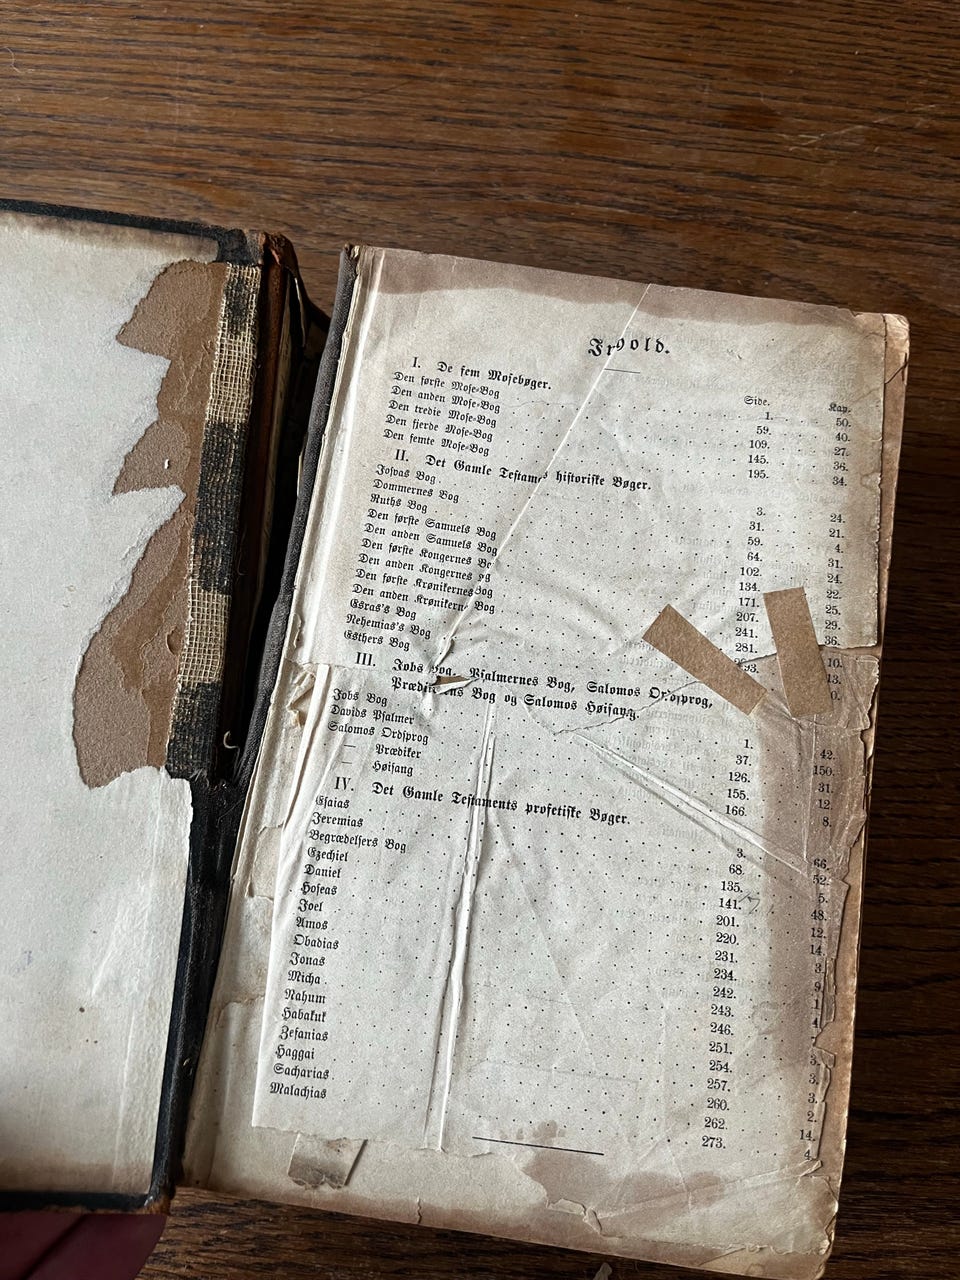 I. De fem Mosebøger.
Side. Kap.
Den første Mose-Bog 1. 50.
Den anden Mose-Bog 59. 40.
Den tredie Mose-Bog 109. 27.
Den fjerde Mose-Bog 145. 36.
Den femte Mose-Bog 195. 34.
II. Det Gamle Testam s historiske Bøger.
Josvas Bog 3. 24.
Dommernes Bog 31. 21.
Ruths Bog 59. 4.
Den første Samuels Bog 64. 31.
Den anden Samuels Bog 102. 24.
Den første Kongernes 134. 22.
Den anden Kongernes 171. 25.
Den første Krønikernes Bog 207. 29.
Den anden Krønikern Bog 241. 36.
Esras's Bog 281. 10.
Nehemias's Bog 13.
Esthers Bog
III. Jobs Bog, Psalmernes Bog, Salomos Ordsprog,
Bog og Salomos Høisang.
Jobs Bog 1. 42.
Davids Psalmer 37. 150.
Salomos Ordsprog 126. 31.
— Prædiker 155. 12.
— Høisang 166. 8.
IV. Det Gamle Testaments profetiske Bøger.
Esaias 3. 66.
Jeremias 68. 52.
Begrædelsers Bog 135. 5.
Ezechiel 141. 48.
Daniel 201. 12.
Hoseas 220. 14.
Joel 231. 3.
Amos 234. 9.
Obadias 242. 1.
Jonas 243. 4.
Micha 246.
Nahum 251. 3.
Habakuk 254. 3.
Zefanias 257. 3.
Haggai 260. 2.
Sacharias 262. 14.
Malachias 273. 4.